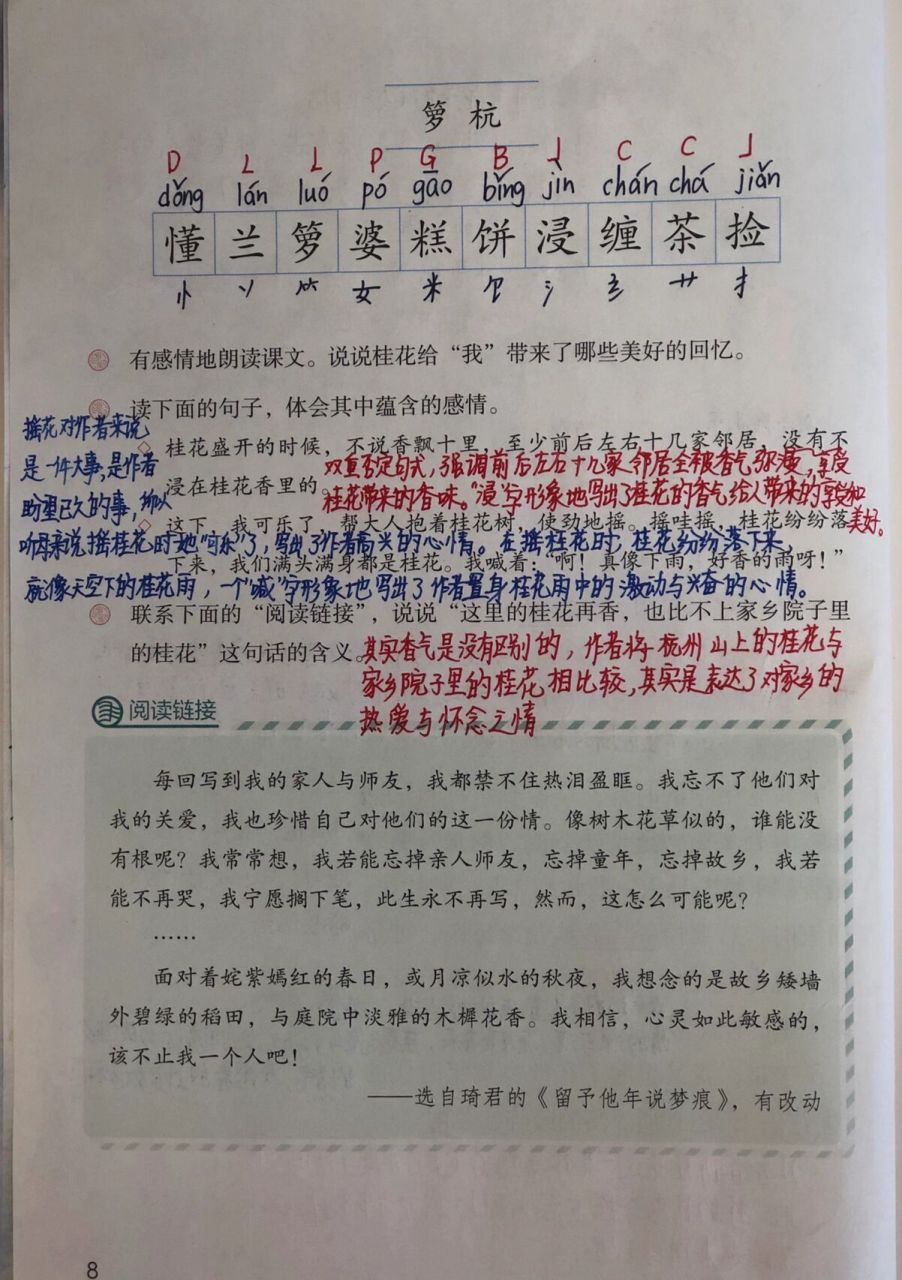 箩 杭
D L L P G B J C C J
dǒng lán luó pó gāo bǐng jìn chán chá jiǎn
懂 兰 箩 婆 糕 饼 浸 缠 茶 捡
忄 丷 ⺮ 女 米 饣 氵 纟 艹 扌
有感情地朗读课文。说说桂花给“我”带来了哪些美好的回忆。
读下面的句子，体会其中蕴含的感情。
摇花对作者来说
是一件大事，是作者
盼望已久的事，所以
桂花盛开的时候，不说香飘十里，至少前后左右十几家邻居，没有不
浸在桂花香里的。
双重否定句式，强调前后左右十几家邻居全被香气“弥漫”，享受
桂花带来的香味。“浸”字形象地写出了桂花的香气给人带来的享受和
美好。
这下，我可乐了，帮大人抱着桂花树，使劲地摇。摇哇摇，桂花纷纷落
下来，我们满头满身都是桂花。我喊着：“啊！真像下雨，好香的雨呀！”
听母亲说摇桂花时她“可乐”了，写出了作者高兴的心情。在摇桂花时，桂花纷纷落下来，
就像天空下的桂花雨，一个“喊”字形象地写出了作者置身桂花雨中的激动与兴奋的心情。
联系下面的“阅读链接”，说说“这里的桂花再香，也比不上家乡院子里
的桂花”这句话的含义。
其实香气是没有区别的，作者将杭州山上的桂花与
家乡院子里的桂花相比较，其实是表达了对家乡的
热爱与怀念之情
阅读链接
每回写到我的家人与师友，我都禁不住热泪盈眶。我忘不了他们对
我的关爱，我也珍惜自己对他们的这一份情。像树木花草似的，谁能没
有根呢？我常常想，我若能忘掉亲人师友，忘掉童年，忘掉故乡，我若
能不再哭，我宁愿搁下笔，此生永不再写，然而，这怎么可能呢？
……
面对着姹紫嫣红的春日，或月凉似水的秋夜，我想念的是故乡矮墙
外碧绿的稻田，与庭院中淡雅的木樨花香。我相信，心灵如此敏感的，
该不止我一个人吧！
——选自琦君的《留予他年说梦痕》，有改动
8